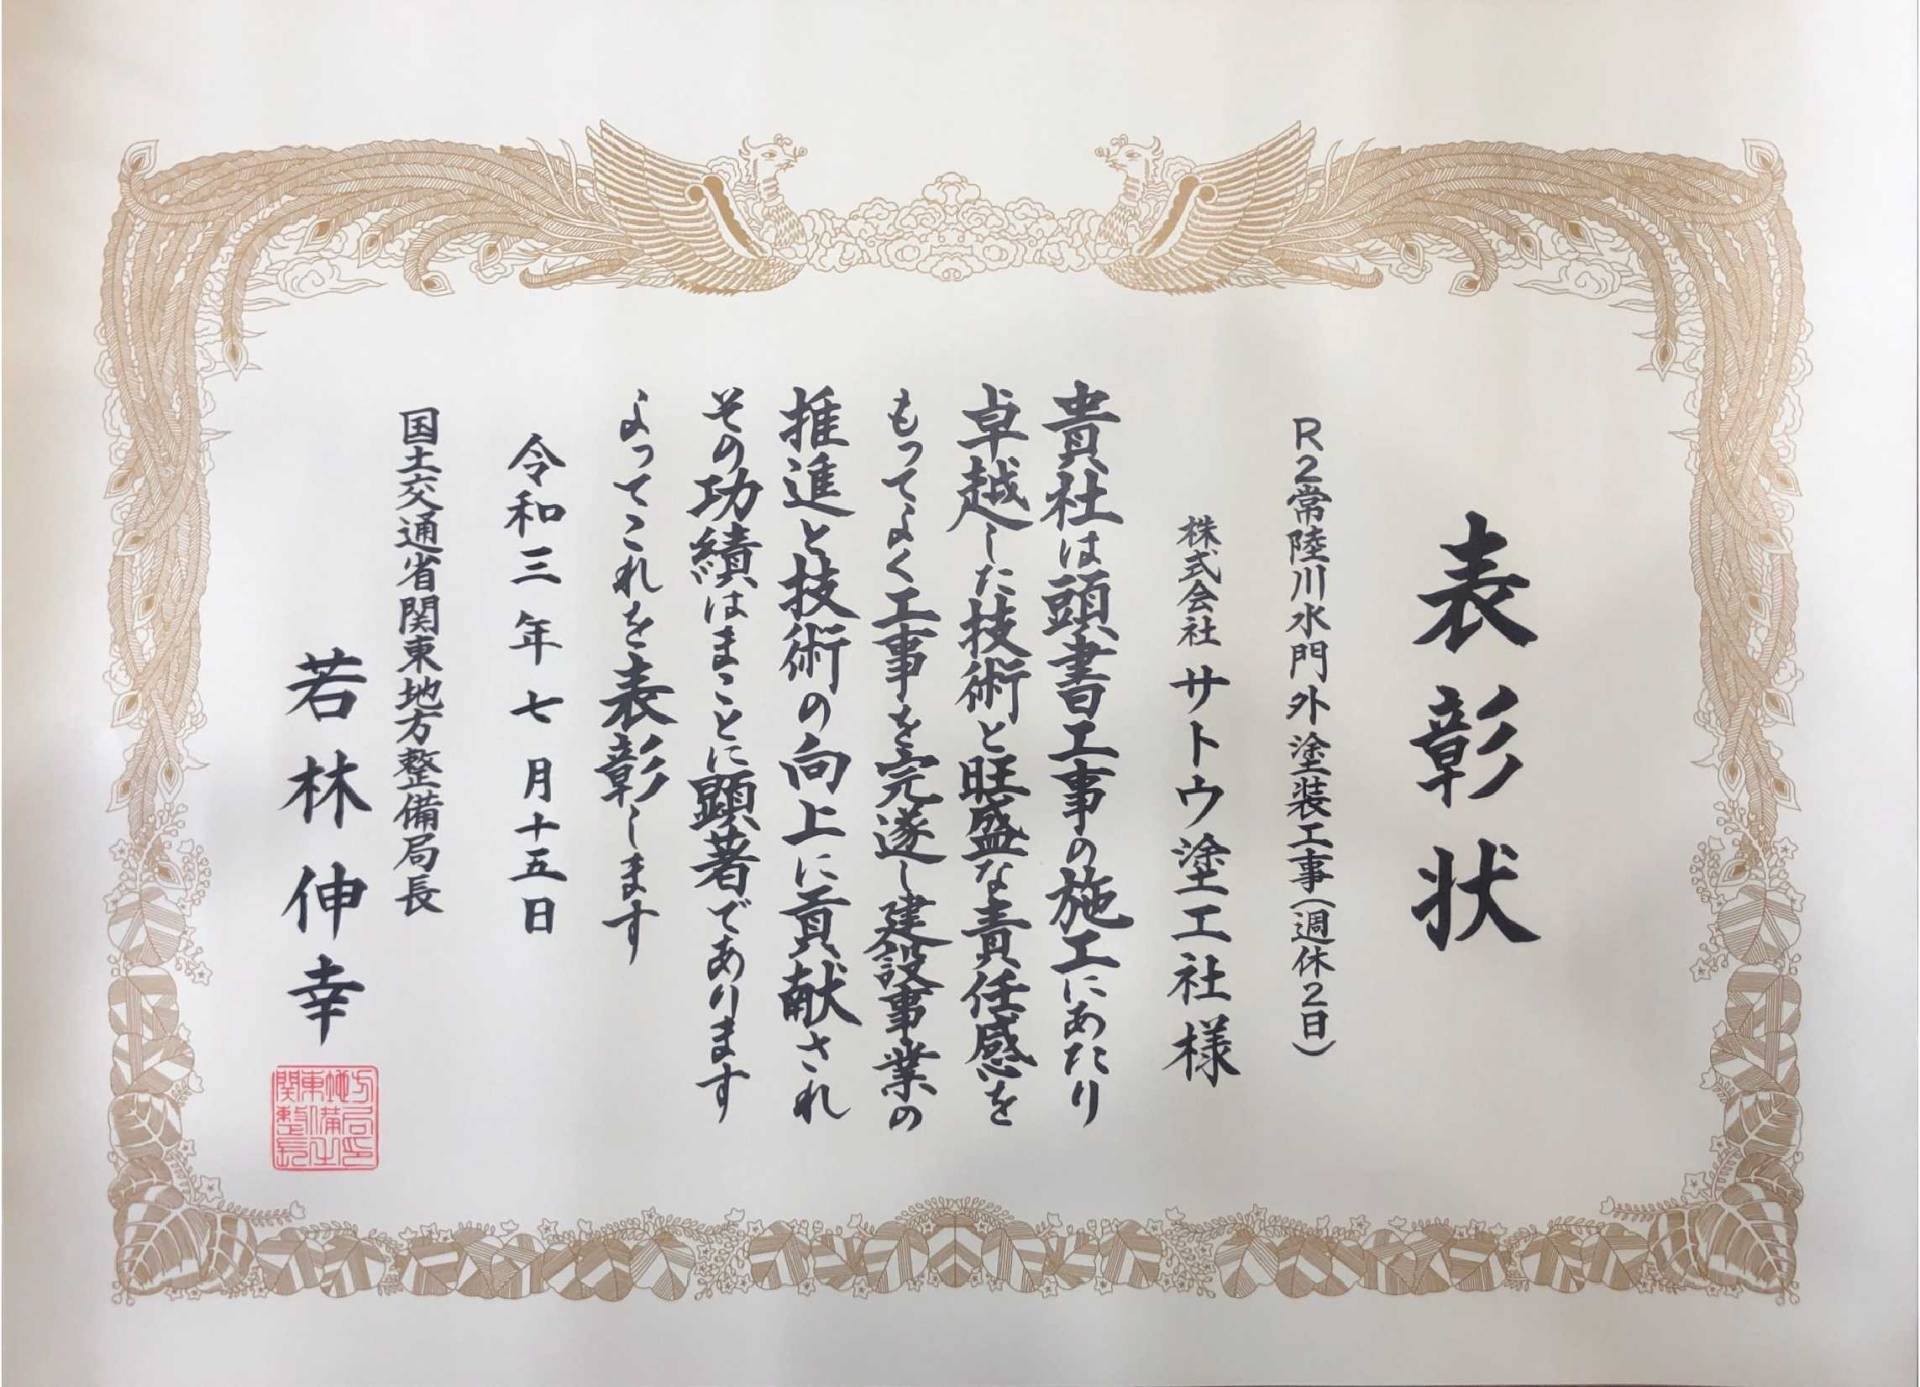 表彰状
R2常陸川水門外塗装工事(週休2日)
株式会社サトウ塗工社様
貴社は頭書工事の施工にあたり
卓越した技術と旺盛な責任感を
もってよく工事を完遂し建設事業の
推進と技術の向上に貢献され
その功績はまことに顕著であります
よってこれを表彰します
令和三年七月十五日
国土交通省関東地方整備局長
若林伸幸